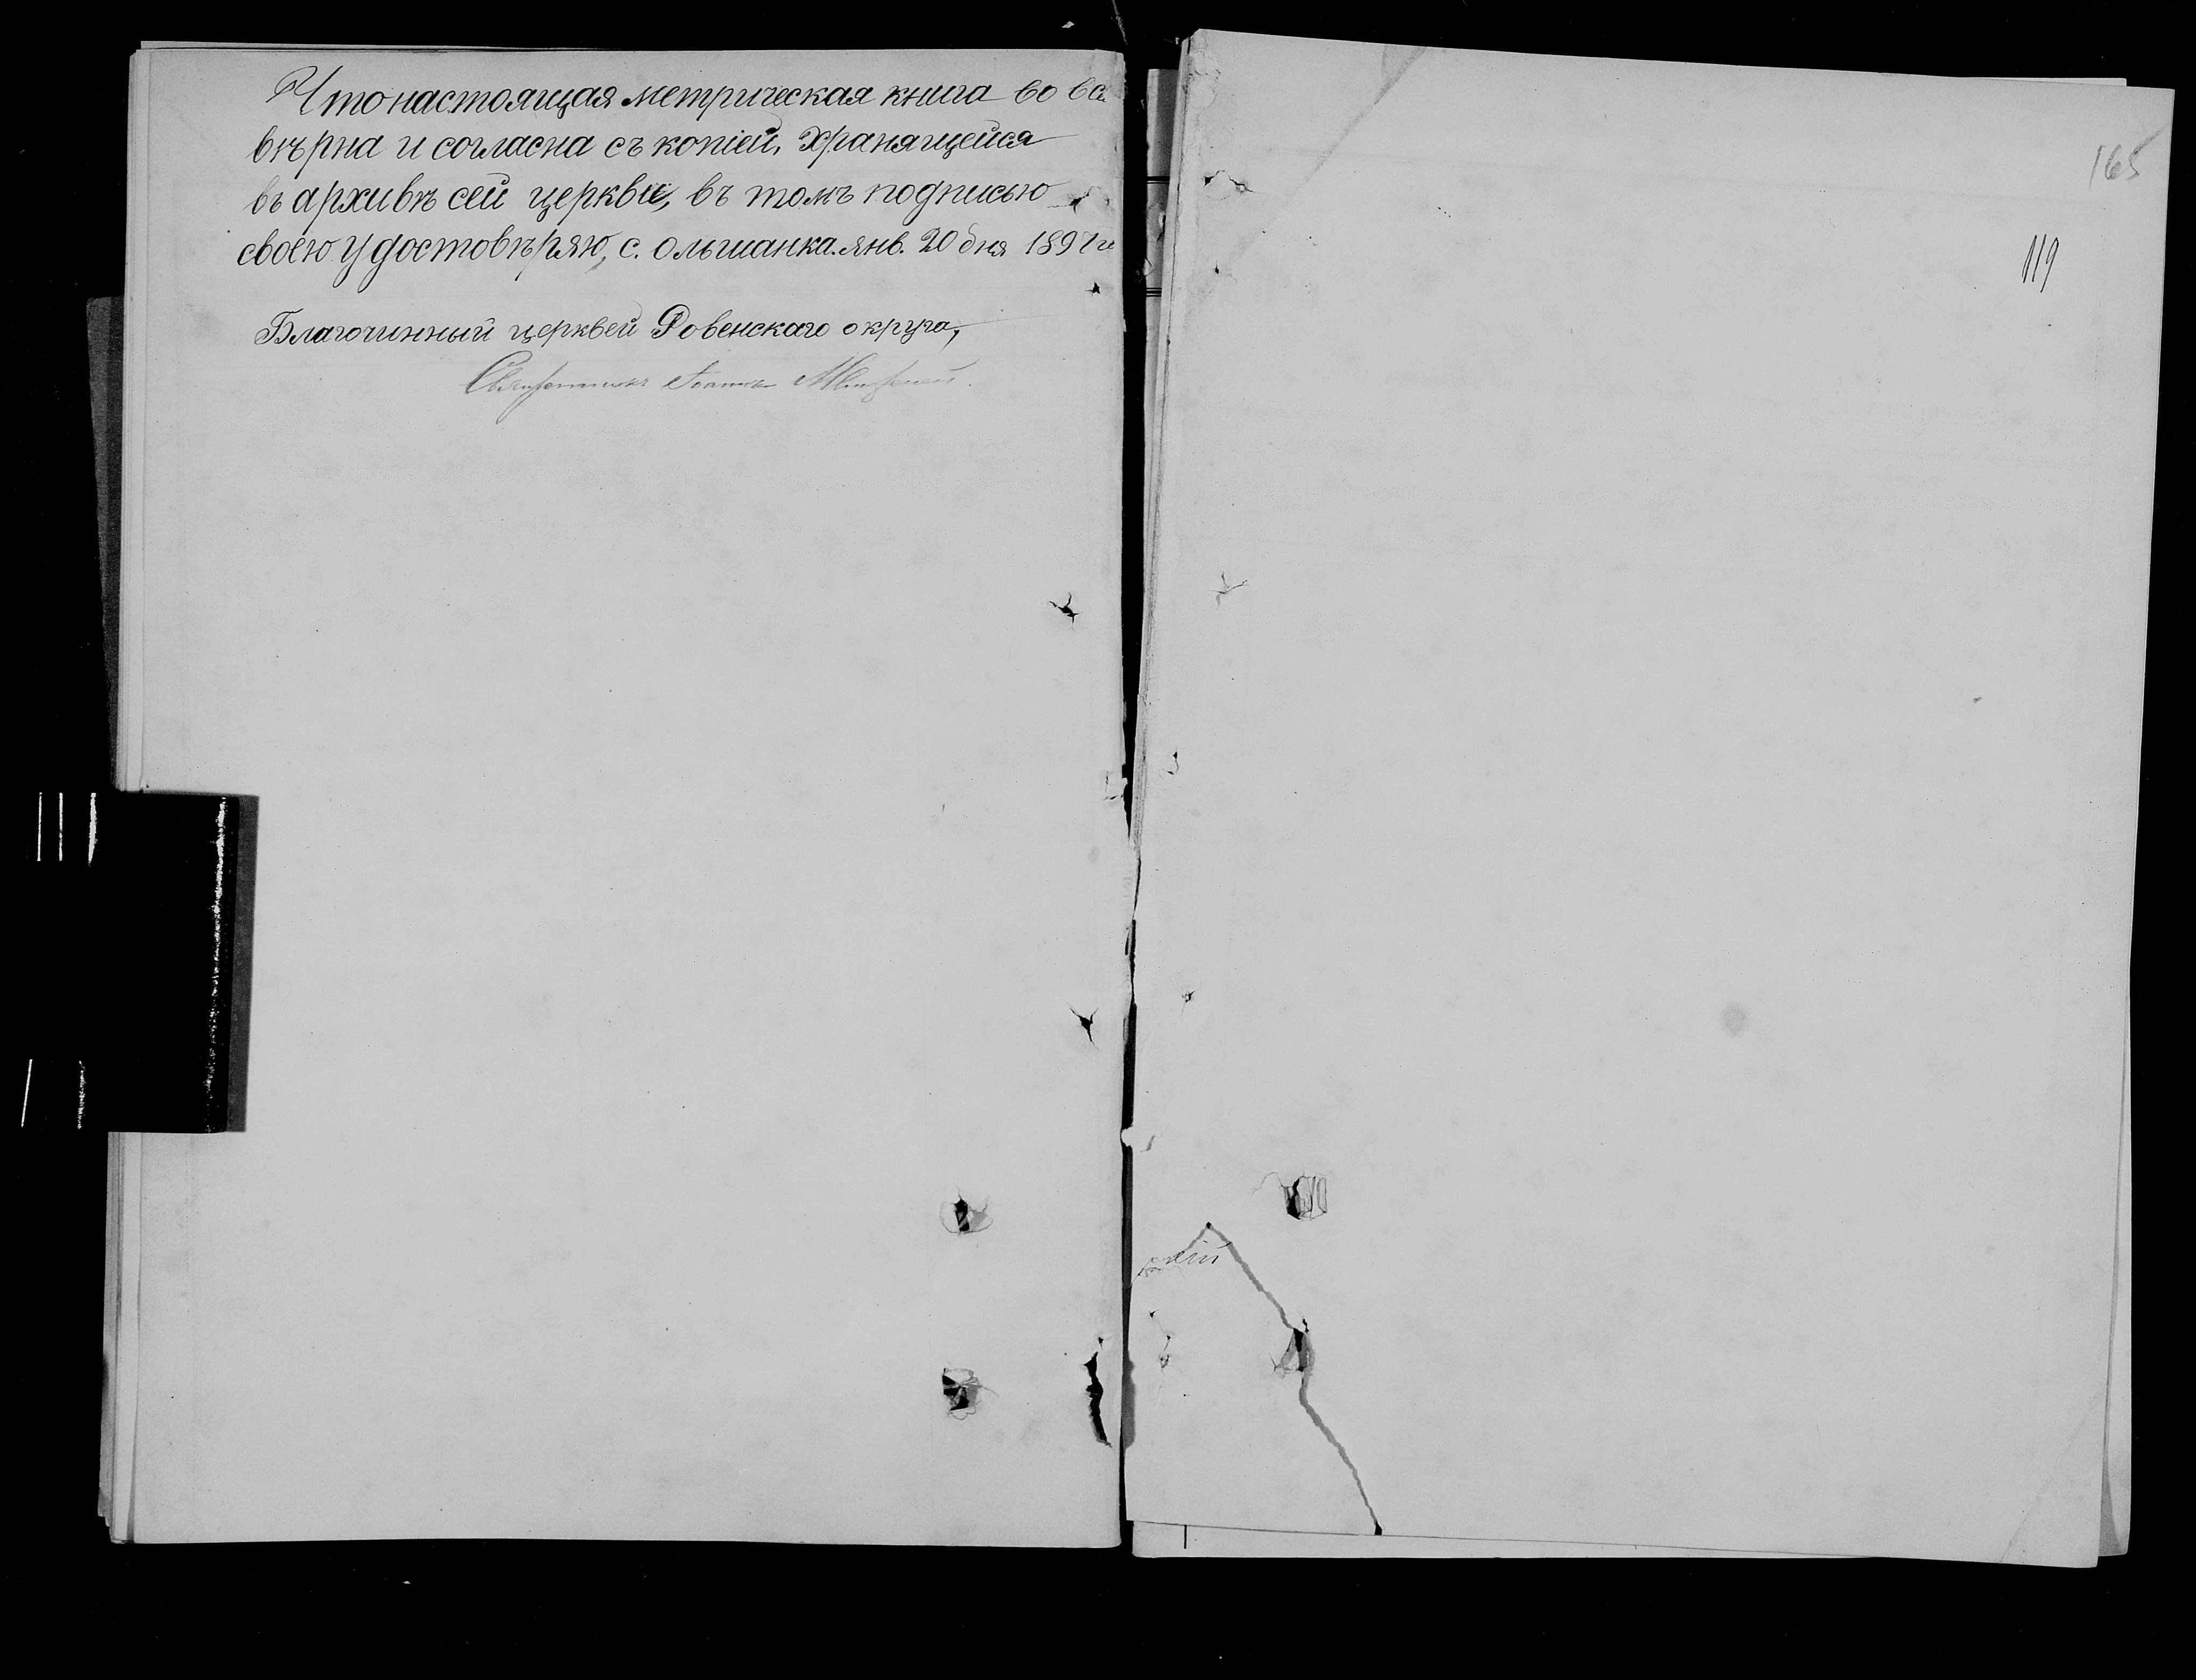 Что настоящая метрическая книга во вс
вѣрна и согласна съ копіей, хранящейся
въ архивѣ сей церкви, въ томъ подписью
своею удостовѣряю, с. Ольшанка. янв. 20 дня 1897 г
Благочинный церквей Ровенскаго округа,
Священникъ Іоаннъ
165
119